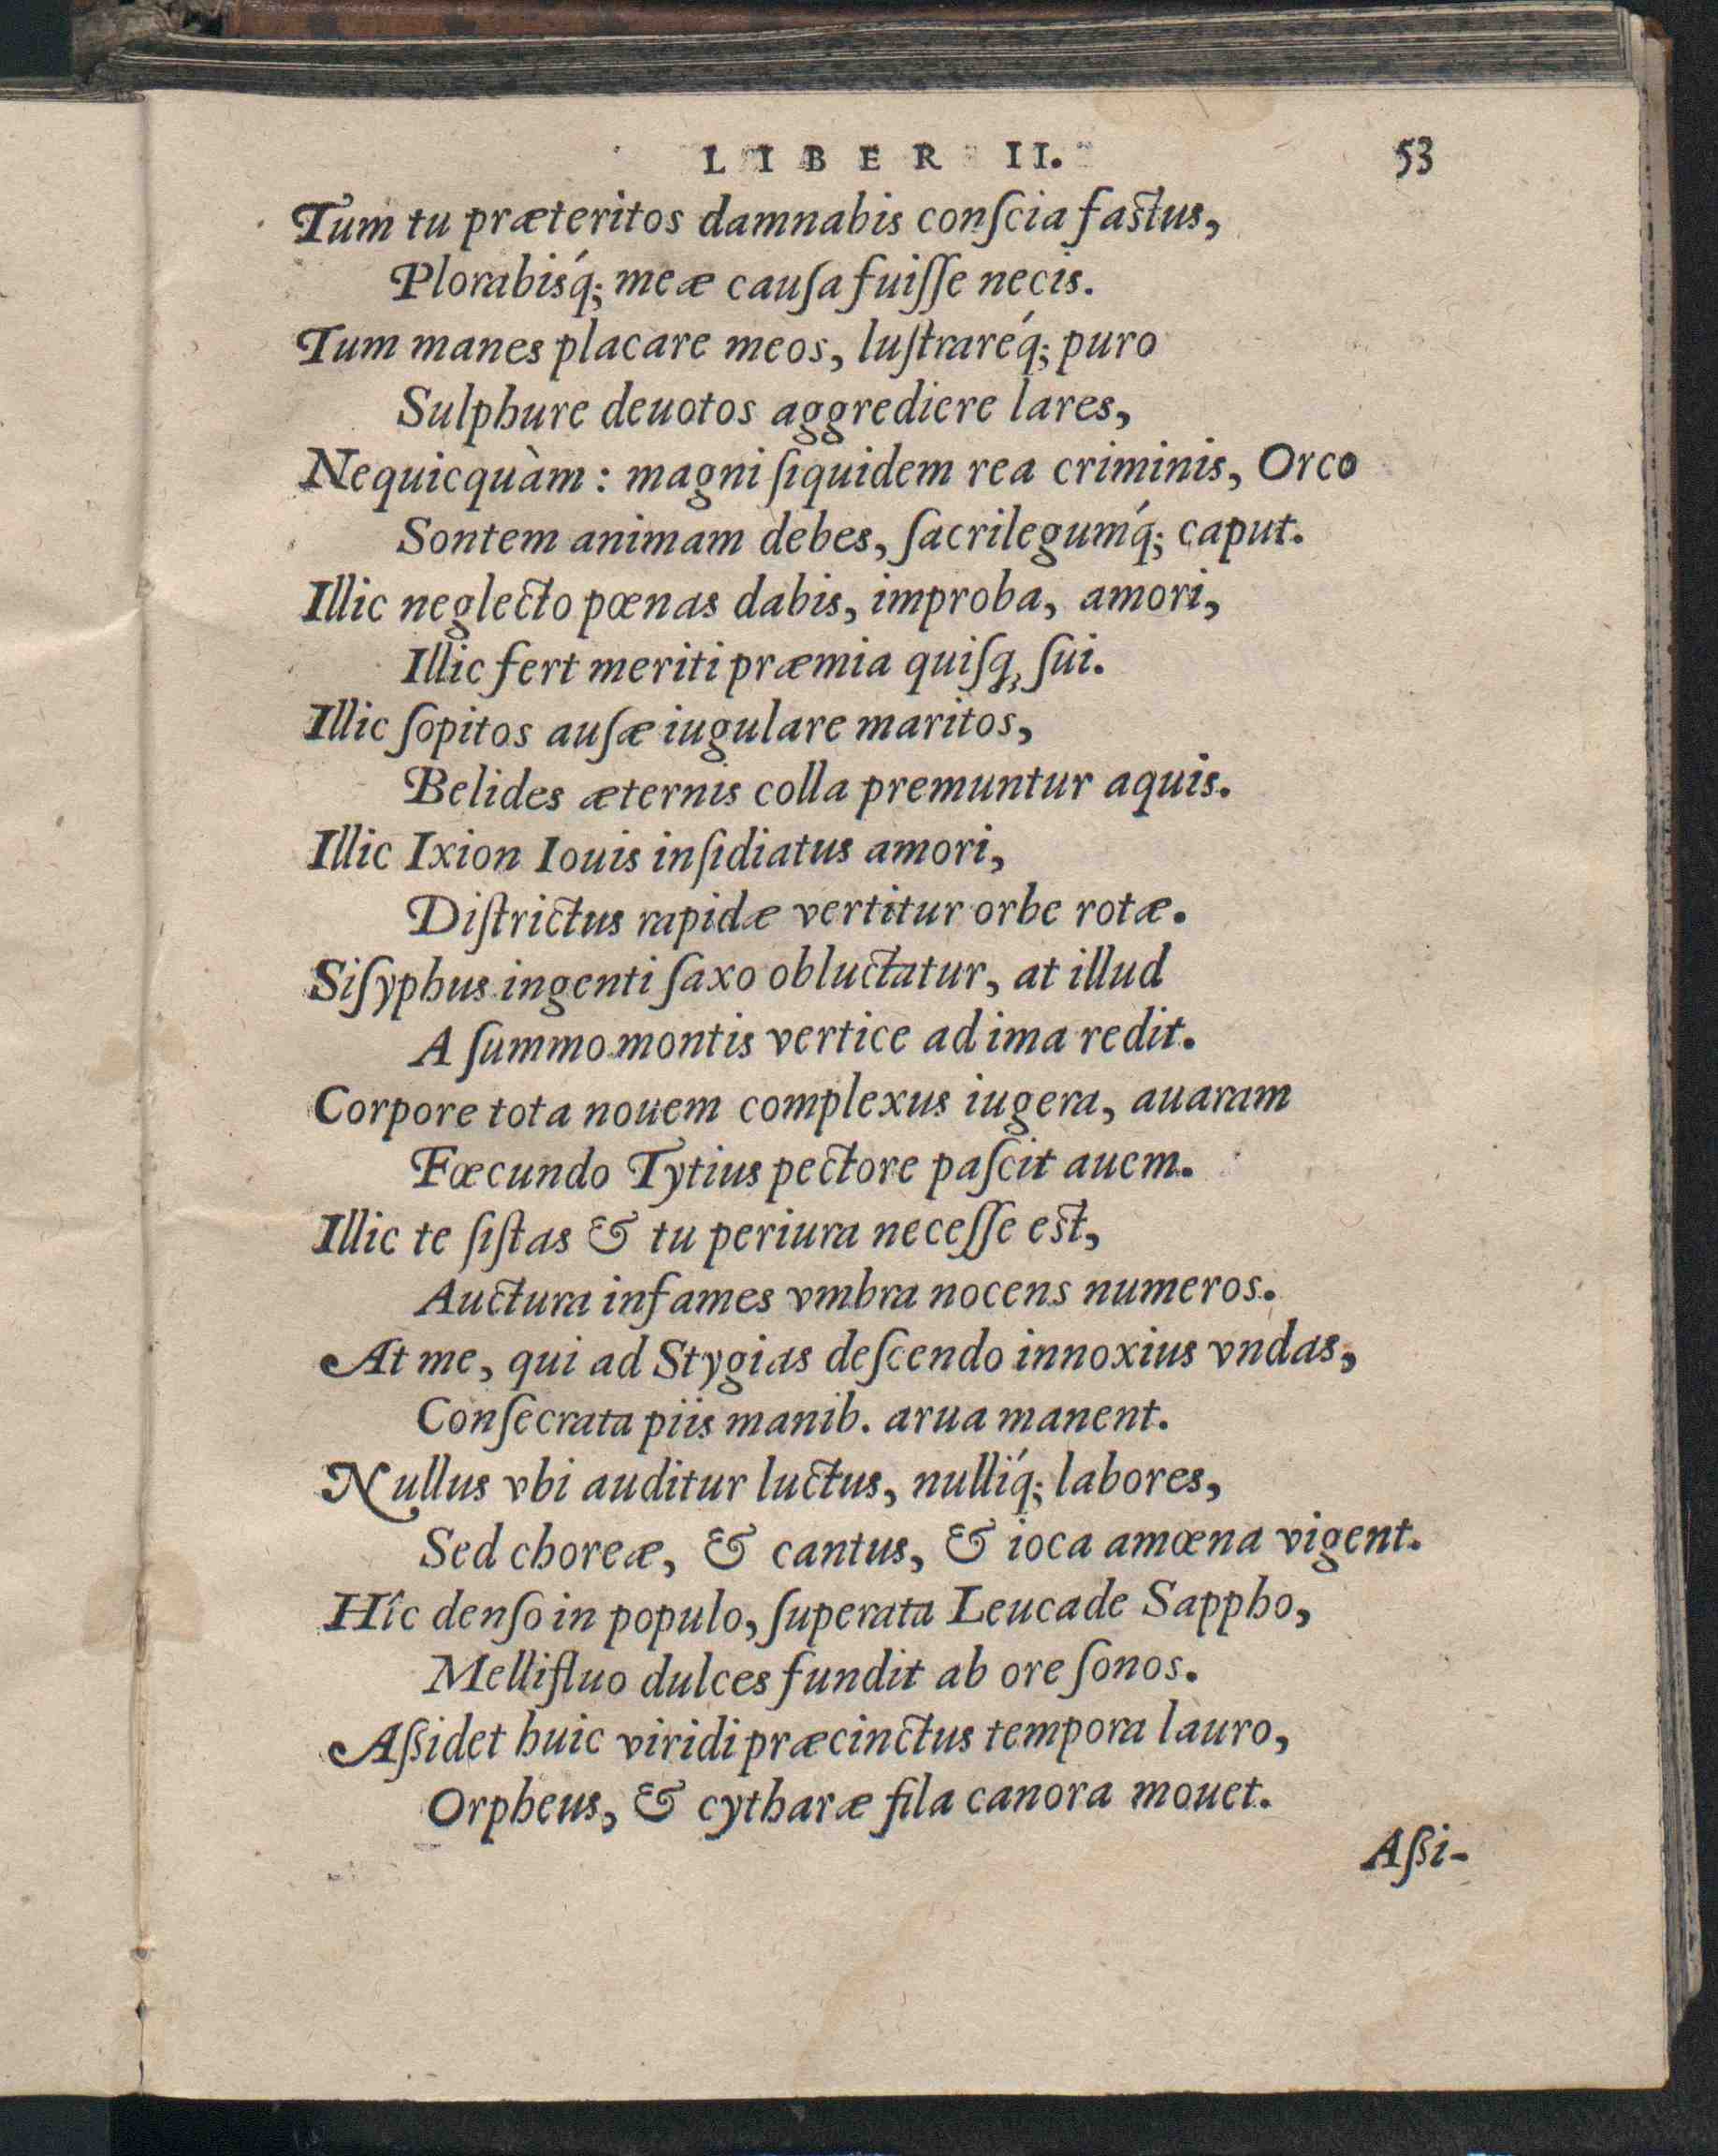 LIBER II. 53
Tum tu præteritos damnabis conſcia faſtus,
Plorabisq́; meæ cauſa fuiſſe necis.
Tum manes placare meos, luſtrareq́; puro
Sulphure deuotos aggrediere lares,
Nequicquàm: magni ſiquidem rea criminis, Orco
Sontem animam debes, ſacrilegumq́; caput.
Illic neglecto pœnas dabis, improba, amori,
Illic fert meriti præmia quiſq; ſui.
Illic ſopitos auſæ iugulare maritos,
Belides æternis colla premuntur aquis.
Illic Ixion Iouis inſidiatus amori,
Diſtrictus rapidæ vertitur orbe rotæ.
Siſyphus ingenti ſaxo obluctatur, at illud
A ſummo montis vertice ad ima redit.
Corpore tota nouem complexus iugera, auaram
Fœcundo Tytius pectore paſcit auem.
Illic te ſiſtas & tu periura neceſſe eſt,
Auctura infames vmbra nocens numeros.
At me, qui ad Stygias deſcendo innoxius vndas,
Conſecrata piis manib. arua manent.
Nullus vbi auditur luctus, nulliq́; labores,
Sed choreæ, & cantus, & ioca amœna vigent.
Hîc denſo in populo, ſuperata Leucade Sappho,
Mellifluo dulces fundit ab ore ſonos.
Aßidet huic viridi præcinctus tempora lauro,
Orpheus, & cytharæ fila canora mouet.
Aßi-